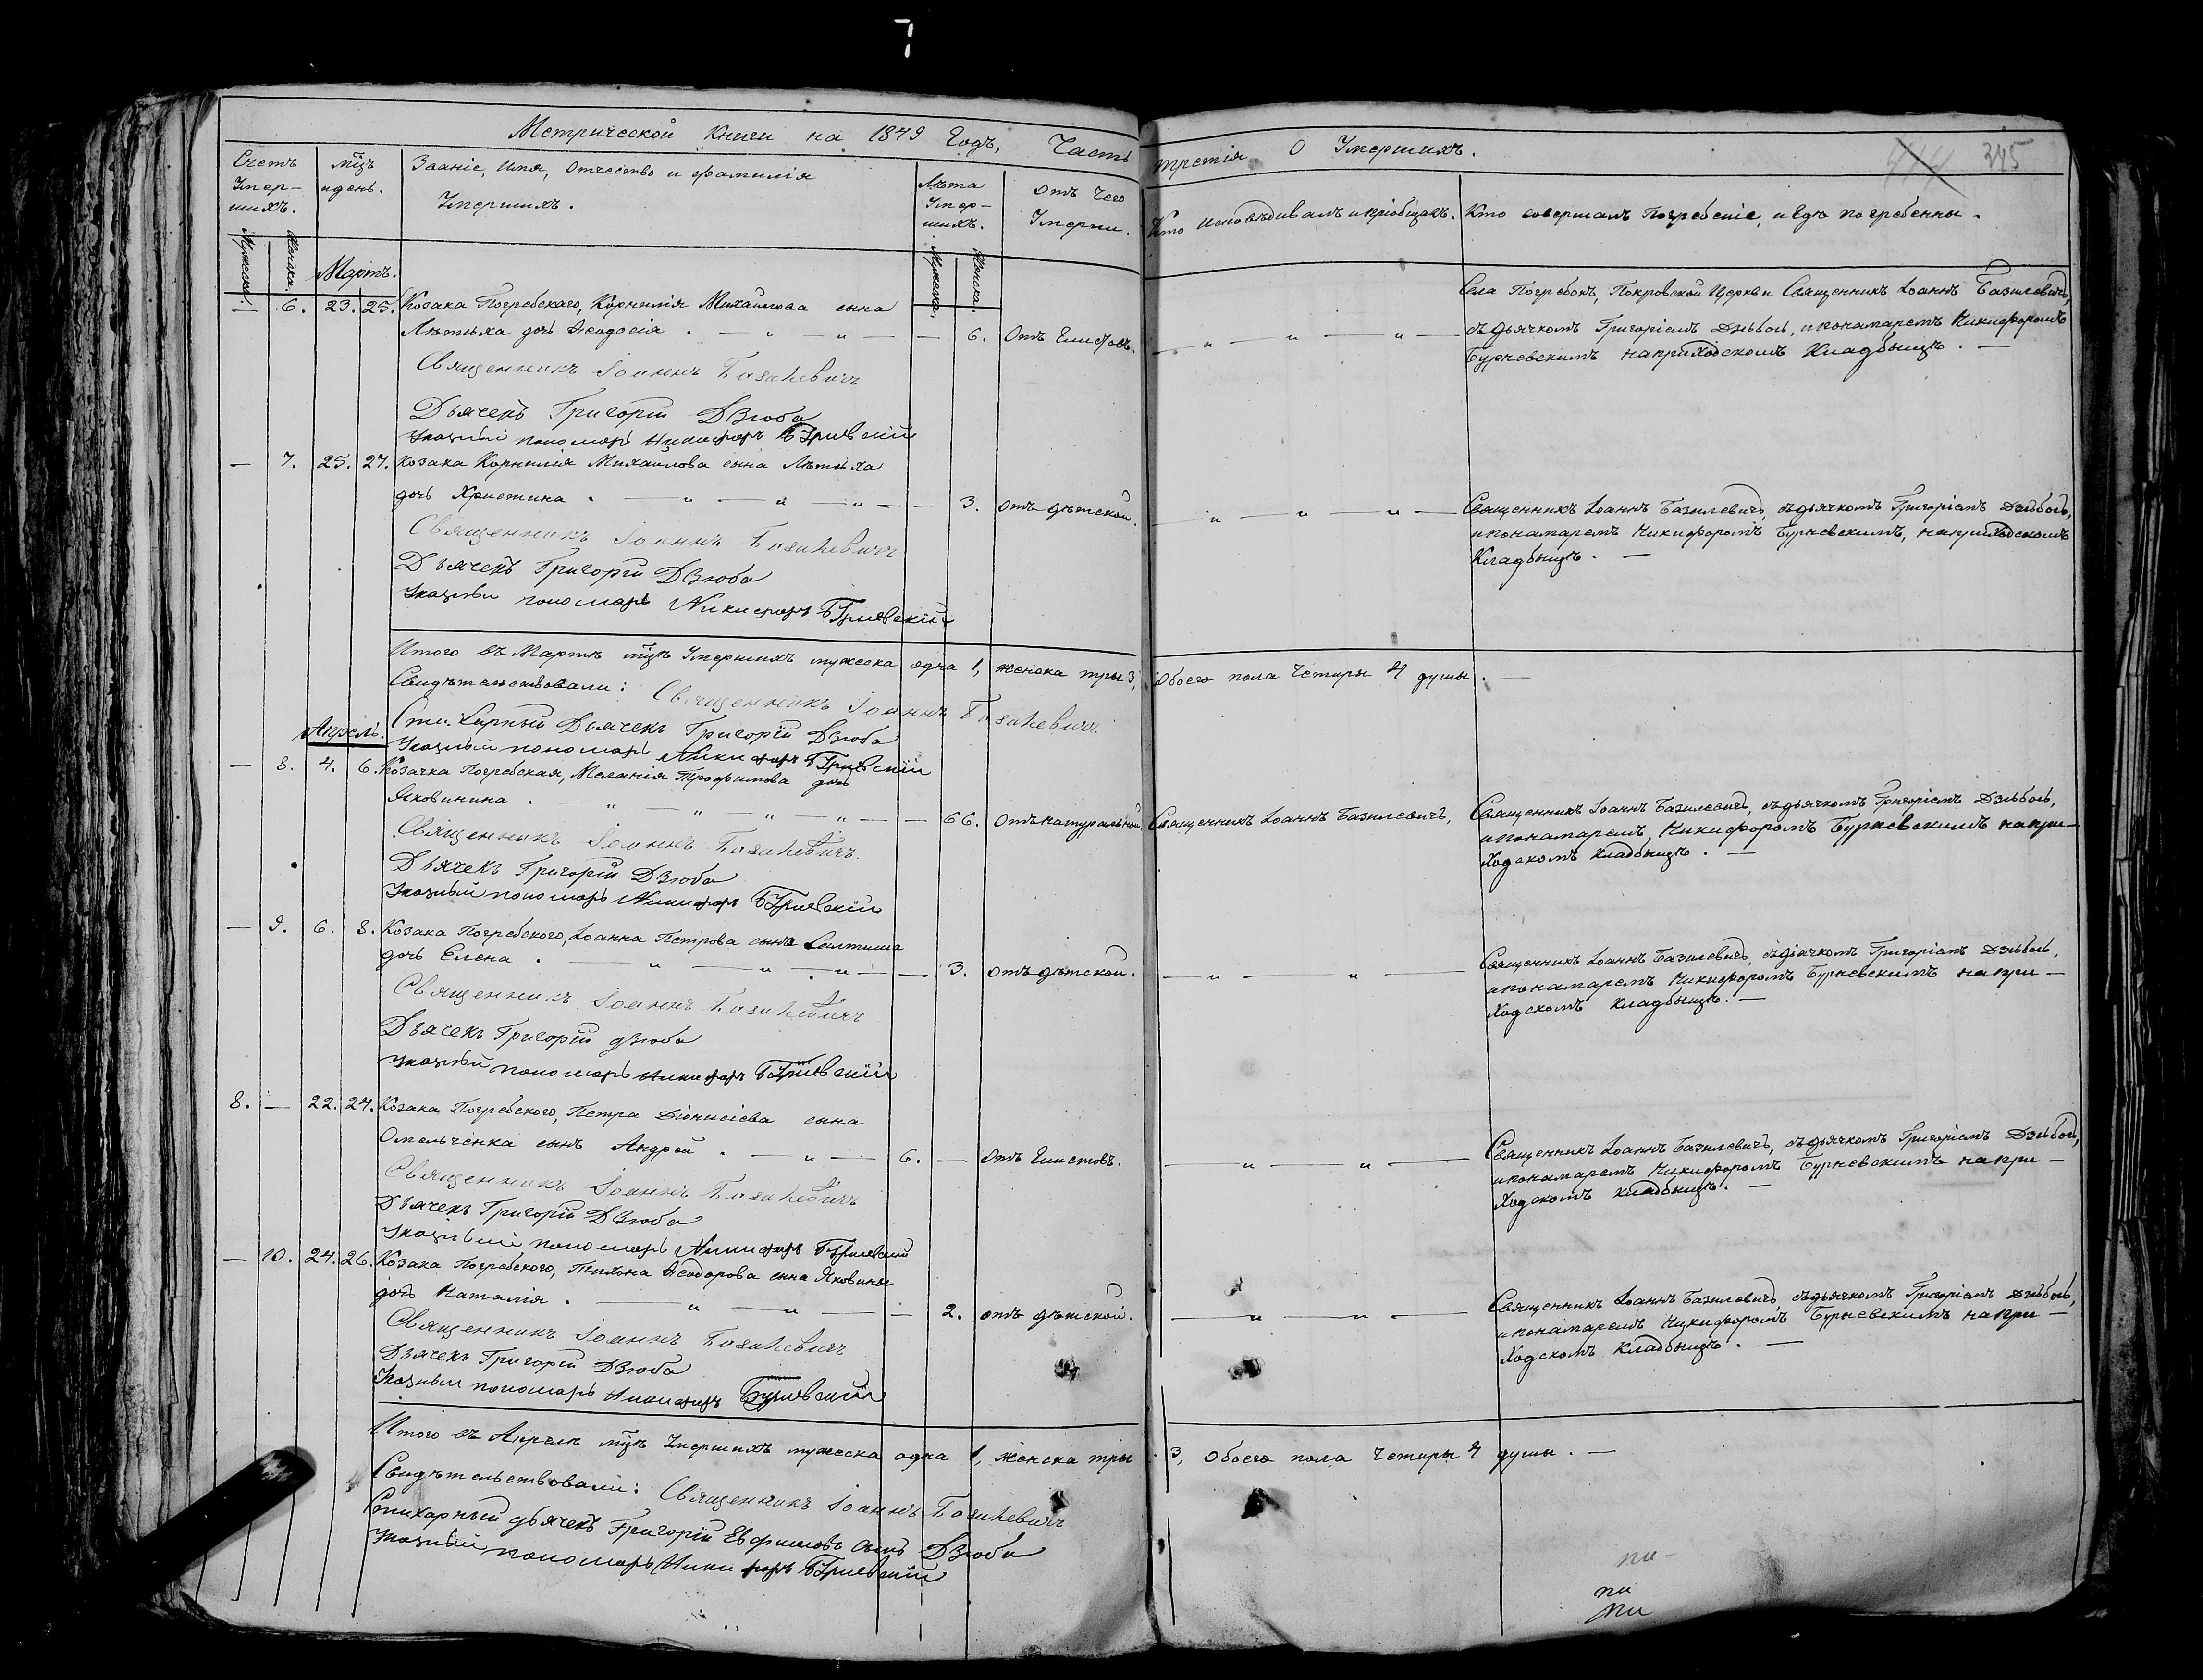 Метрической Книги на 1849 Годъ, Часть третія О Умершихъ.
375
Счетъ Умер-шихъ.
мцъ и день.
Званіе, Имя, Отчество и Фамилія Умершихъ.
Лѣта Умер-шихъ.
Отъ Чего Умерли.
Кто исповѣдивалъ и пріобщалъ.
Кто совершалъ Погребеніе, и Гдѣ погребенны.
Мужеска. Женска.
Мужеска. Женска.
Мартъ.
— 6. 23. 25. Козака Погребскаго, Корнилія Михайлова сына
Лѣтиха дочь Феодосія . — „ „ — — 6. Отъ Глистовъ. — „ — „ — „ —
Села Погребокъ, Покровской Церкви Священникъ Іоаннъ Базилевичъ,
съ дьячкомъ Григоріемъ Дзюбою, и понамаремъ Никифоромъ
Бурчевскимъ на приходскомъ Кладбищѣ . —
Священникъ Іоаннъ Базилевичъ
Дьячекъ Григорій Дзюба
Указный пономарь Никифоръ
— 7. 25. 27. Козака Корнилія Михайлова сына Лѣтиха
дочь Христина . — „ — „ — „ — — 3. Отъ дѣтской. — „ — „ — „ —
Священникъ Іоаннъ Базилевичъ, съ дьячкомъ Григоріемъ Дзюбою,
и понамаремъ Никифоромъ Бурчевскимъ, на приходскомъ
Кладбищѣ . —
Священникъ Іоаннъ Базилевичъ
Дьячекъ Григорій Дзюба
Указный пономарь Никифоръ
Итого въ Мартѣ мцѣ Умершихъ мужеска одна 1, женска три 3, Обоего пола Четыри 4 души . —
Свидѣтельствовали: Священникъ Іоаннъ Базилевичъ
Стихарный Дьячекъ Григорій Дзюба
Указный пономарь Никифоръ
Апрель.
— 8. 4. 6. Козачка Погребская, Меланія Трофимова дочь
Яковинина . — „ — „ — „ — „ — — 66. Отъ натуральной. Священникъ Іоаннъ Базилевичъ,
Священникъ Іоаннъ Базилевичъ, съ дьячкомъ Григоріемъ Дзюбою,
и понамаремъ, Никифоромъ Бурчевскимъ на при-
ходскомъ кладбищѣ . —
Священникъ Іоаннъ Базилевичъ
Дьячекъ Григорій Дзюба
Указный пономарь Никифоръ
— 9. 6. 8. Козака Погребского, Іоанна Петрова сына
дочь Елена . — „ — „ — „ — — 3. Отъ дѣтской. — „ — „ —
Священникъ Іоаннъ Базилевичъ, съ дьячкомъ Григоріемъ Дзюбою,
и понамаремъ Никифоромъ Бурчевскимъ на при-
ходскомъ кладбищѣ. —
Священникъ Іоаннъ Базилевичъ
Дьячекъ Григорій Дзюба
Указный пономарь Никифоръ
8. — 22. 24. Козака Погребского, Петра Діонисіева сына
Омельченка сынъ Андрей . — „ — 6. — Отъ Глистовъ. — „ — „ —
Священникъ Іоаннъ Базилевичъ, съ дьячкомъ Григоріемъ Дзюбою,
и понамаремъ Никифоромъ Бурчевскимъ на при-
ходскомъ кладбищѣ. —
Священникъ Іоаннъ Базилевичъ
Дьячекъ Григорій Дзюба
Указный пономарь Никифоръ
— 10. 24. 26. Козака Погребского, Тихона Феодорова сына Яковины
дочь Наталія . — „ — „ — — 2. Отъ дѣтской. — „ — „ —
Священникъ Іоаннъ Базилевичъ, съ дьячкомъ Григоріемъ Дзюбою,
и понамаремъ Никифоромъ Бурчевскимъ на при-
ходскомъ кладбищѣ . —
Священникъ Іоаннъ Базилевичъ
Дьячекъ Григорій Дзюба
Указный пономарь Никифоръ
Итого въ Апрелѣ мцѣ Умершихъ мужеска одна 1, женска три 3, Обоего пола Четыри 4 души . —
Свидѣтельствовали: Священникъ Іоаннъ Базилевичъ
Стихарный дьячекъ Григорій Евфимовъ сынъ Дзюба
Указный пономарь Никифоръ